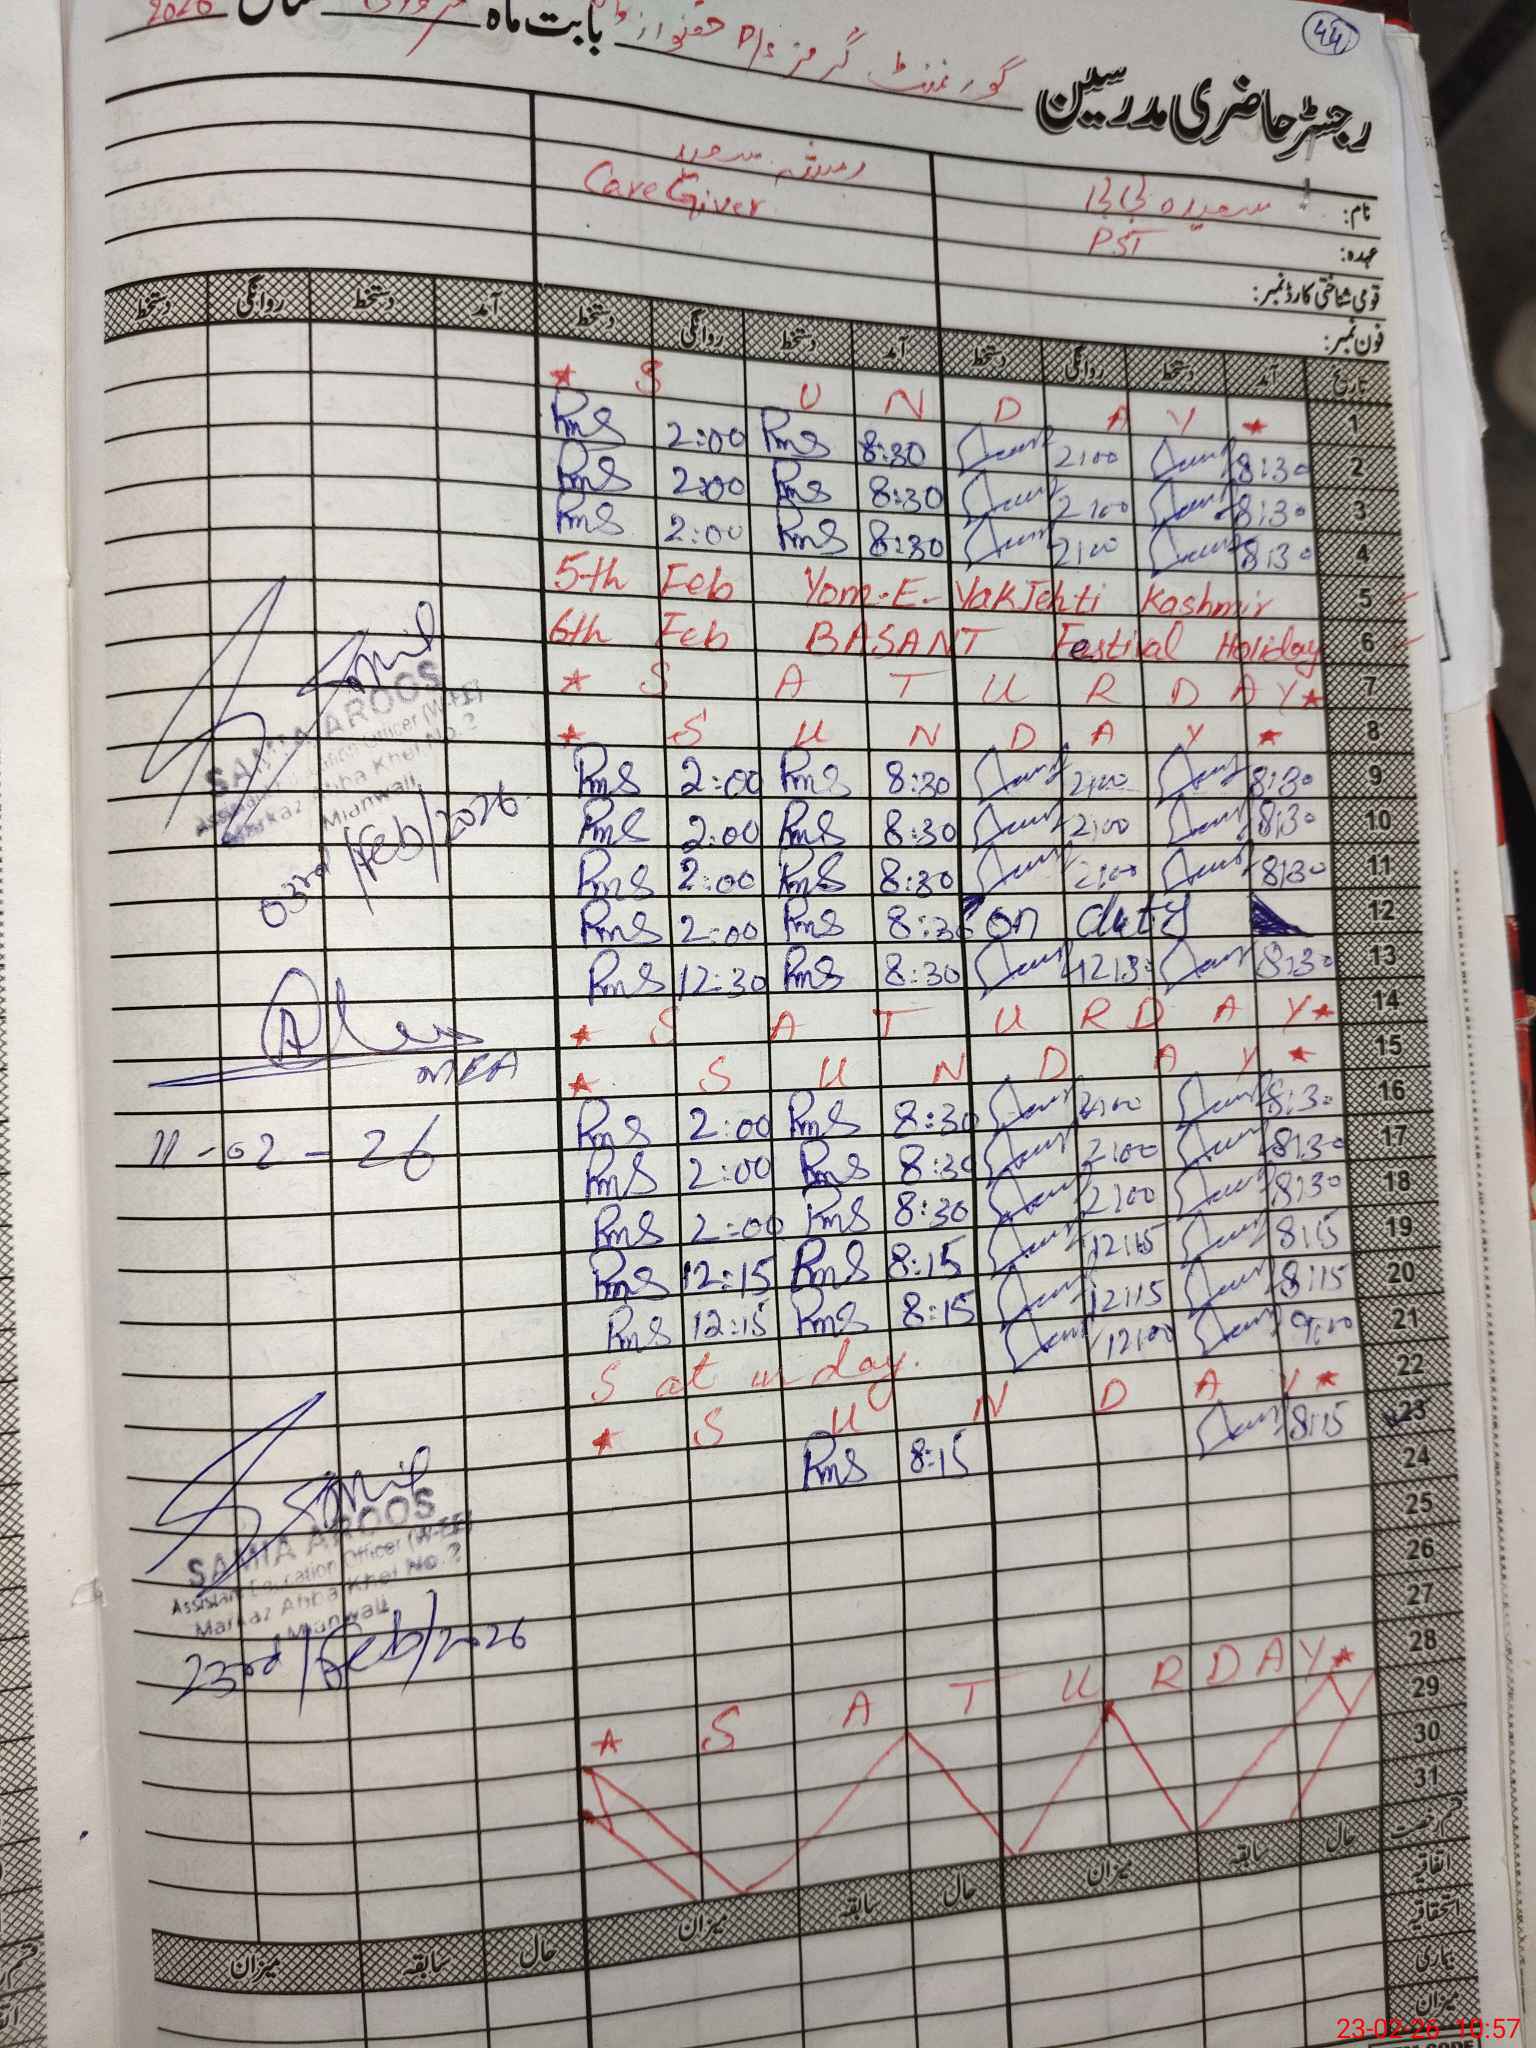 44
رجسٹر حاضری مدرسین گورنمنٹ گرلز P/S بابت ماہ فروری سال 2026
نام: سعیدہ بی بی
Care Giver
عہدہ: PST
قومی شناختی کارڈ نمبر:
فون نمبر:
تاریخ آمد دستخط روانگی دستخط آمد دستخط روانگی دستخط آمد دستخط روانگی دستخط
1 ★ S U N D A Y ★
2 8:30 2:00 8:30 RmS 2:00 RmS
3 8:30 2:00 8:30 RmS 2:00 RmS
4 8:30 2:00 8:30 RmS 2:00 RmS
5 5-th Feb Yom-E-YakJehti Kashmir
6 6th Feb BASANT Festival Holiday
7 ★ S A T U R D A Y ★
8 ★ S U N D A Y ★
9 8:30 2:00 8:30 RmS 2:00 RmS
10 8:30 2:00 8:30 RmS 2:00 RmS
11 8:30 2:00 8:30 RmS 2:00 RmS
12 on duty 8:30 RmS 2:00 RmS
13 8:30 12:30 8:30 RmS 12:30 RmS
14 ★ S A T U R D A Y ★
15 ★ S U N D A Y ★
16 8:30 2:00 8:30 RmS 2:00 RmS
17 8:30 2:00 8:30 RmS 2:00 RmS
18 8:30 2:00 8:30 RmS 2:00 RmS
19 8:15 12:15 8:15 RmS 12:15 RmS
20 8:15 12:15 8:15 RmS 12:15 RmS
21 9:00 12:00 Saturday.
22 ★ S U N D A Y ★
23 8:15 8:15 RmS
24
25
26
27
28 ★ S A T U R D A Y ★
29
30
31
SAMIA AROOS
Assistant Education Officer (W-EE)
Markaz Abba Khel No.2
Mianwali
03rd/Feb/2026
MEA
11-02-26
SAMIA AROOS
Assistant Education Officer (W-EE)
Markaz Abba Khel No.2
Mianwali
23rd/Feb/2026
قسم رخصت حال سابقہ میزان حال سابقہ میزان حال سابقہ میزان
اتفاقیہ
استحقاقیہ
بیماری
میزان
23-02-26 10:57